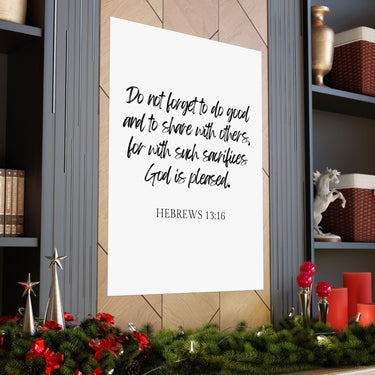 Do not forget to do good
and to share with others,
for with such sacrifices
God is pleased.
HEBREWS 13:16